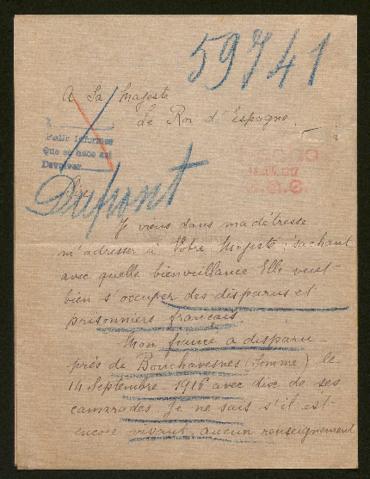 59741
A Sa Majesté
Le Roi d'Espagne.
Pedir informes
Que se hace así
Devolver
Dupont
Je viens dans ma détresse
m'adresser à Votre Majesté; sachant
avec quelle bienveillance Elle veut
bien s'occuper des disparus et
prisonniers français.
Mon fiancé a disparu
près de Bouchavesnes (Somme) le
14 Septembre 1916 avec dix de ses
camarades. Je ne sais s'il est
encore vivant, aucun renseignement